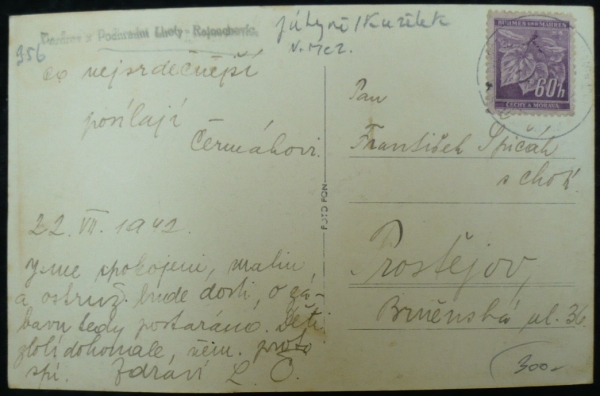 956
Pozdrav z Podhradní Lhoty - Rajnochovic
co nejsrdečnější
posílají
Čermákovi.
22. VII. 1942.
Jsme spokojeni, malin
a ostruž. bude dosti, o zá-
bavu tedy postaráno. Děti
zlobí dokonale, proto
spí. Zdraví L. Č.
FOTO FON
BÖHMEN U. MÄHREN
60 h
ČECHY A MORAVA
Pan
František Špičák
s chotí
Prostějov,
Brněnská ul. 36.
300-